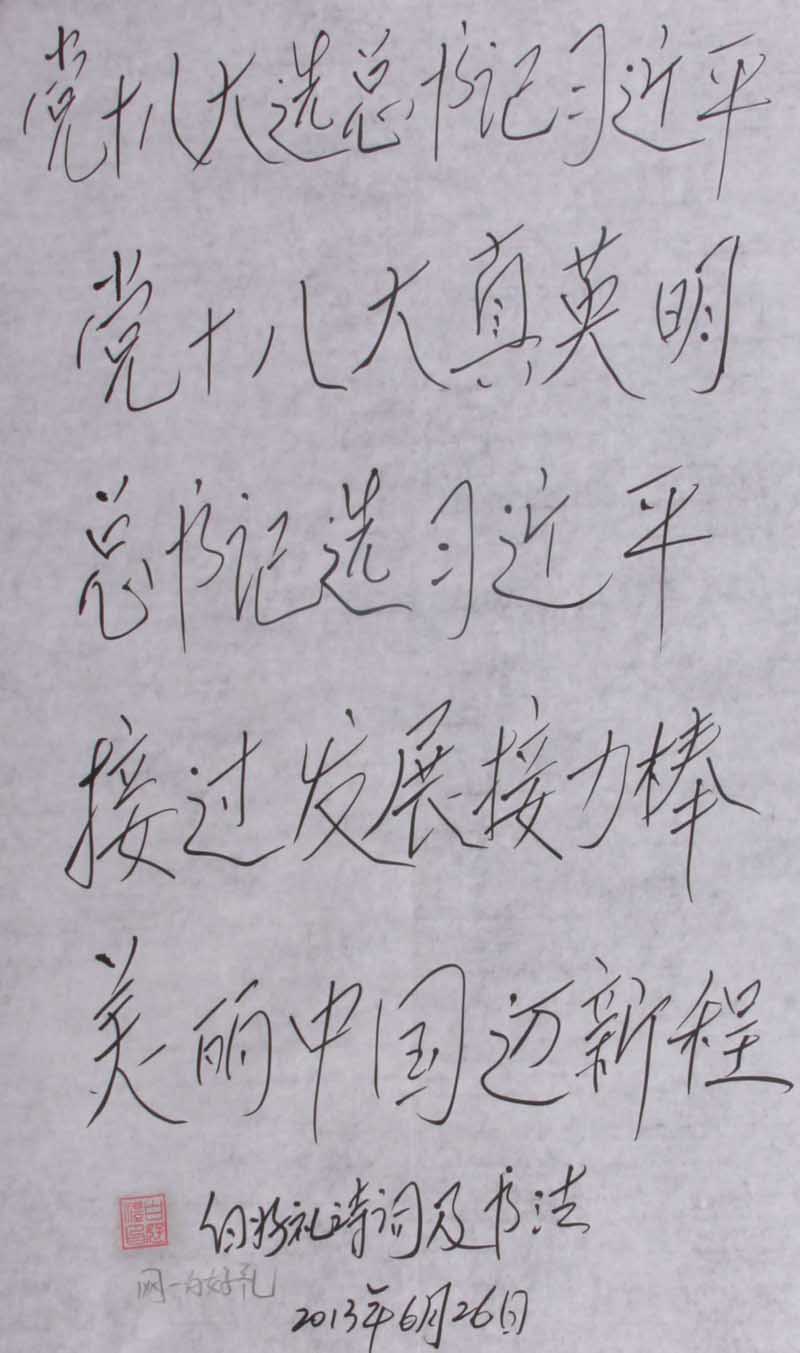 党十八大选总书记习近平
党十八大真英明
总书记选习近平
接过发展接力棒
美丽中国迈新程
白好礼诗词及书法
网一白好礼
2013年6月26日